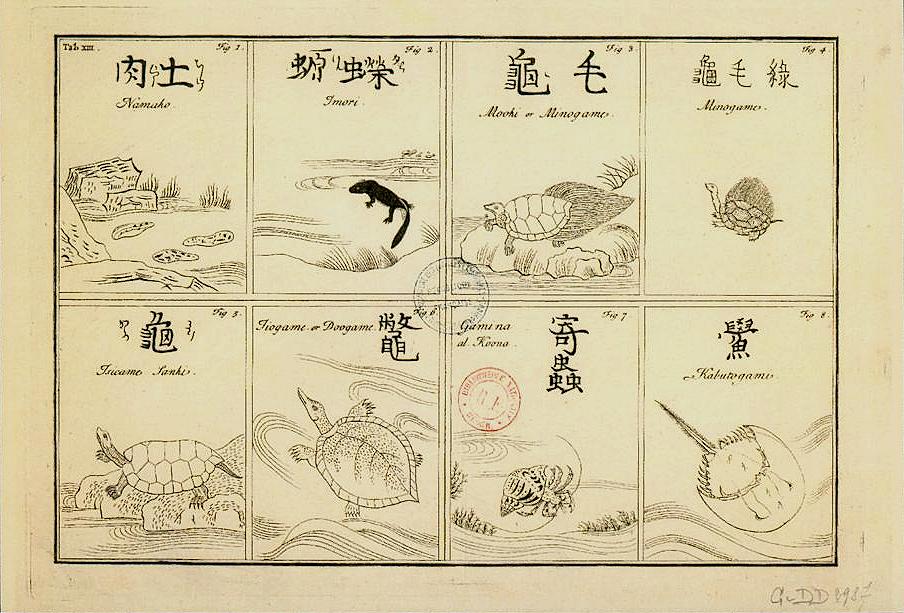 Tab XIII.
Fig 1.
肉 土
Namako.
Fig 2.
蠑
Imori.
Fig 3
龜 毛
Mooki or Minogame.
Fig 4.
龜 毛 綠
Minogame.
Fig 5
龜
Isicame Sanki.
Fig 6
Jiogame. or Doogame.
鼈
Fig 7
Gamina
al. Koona.
寄
蟲
Fig 8.
鱟
Kabutogami.